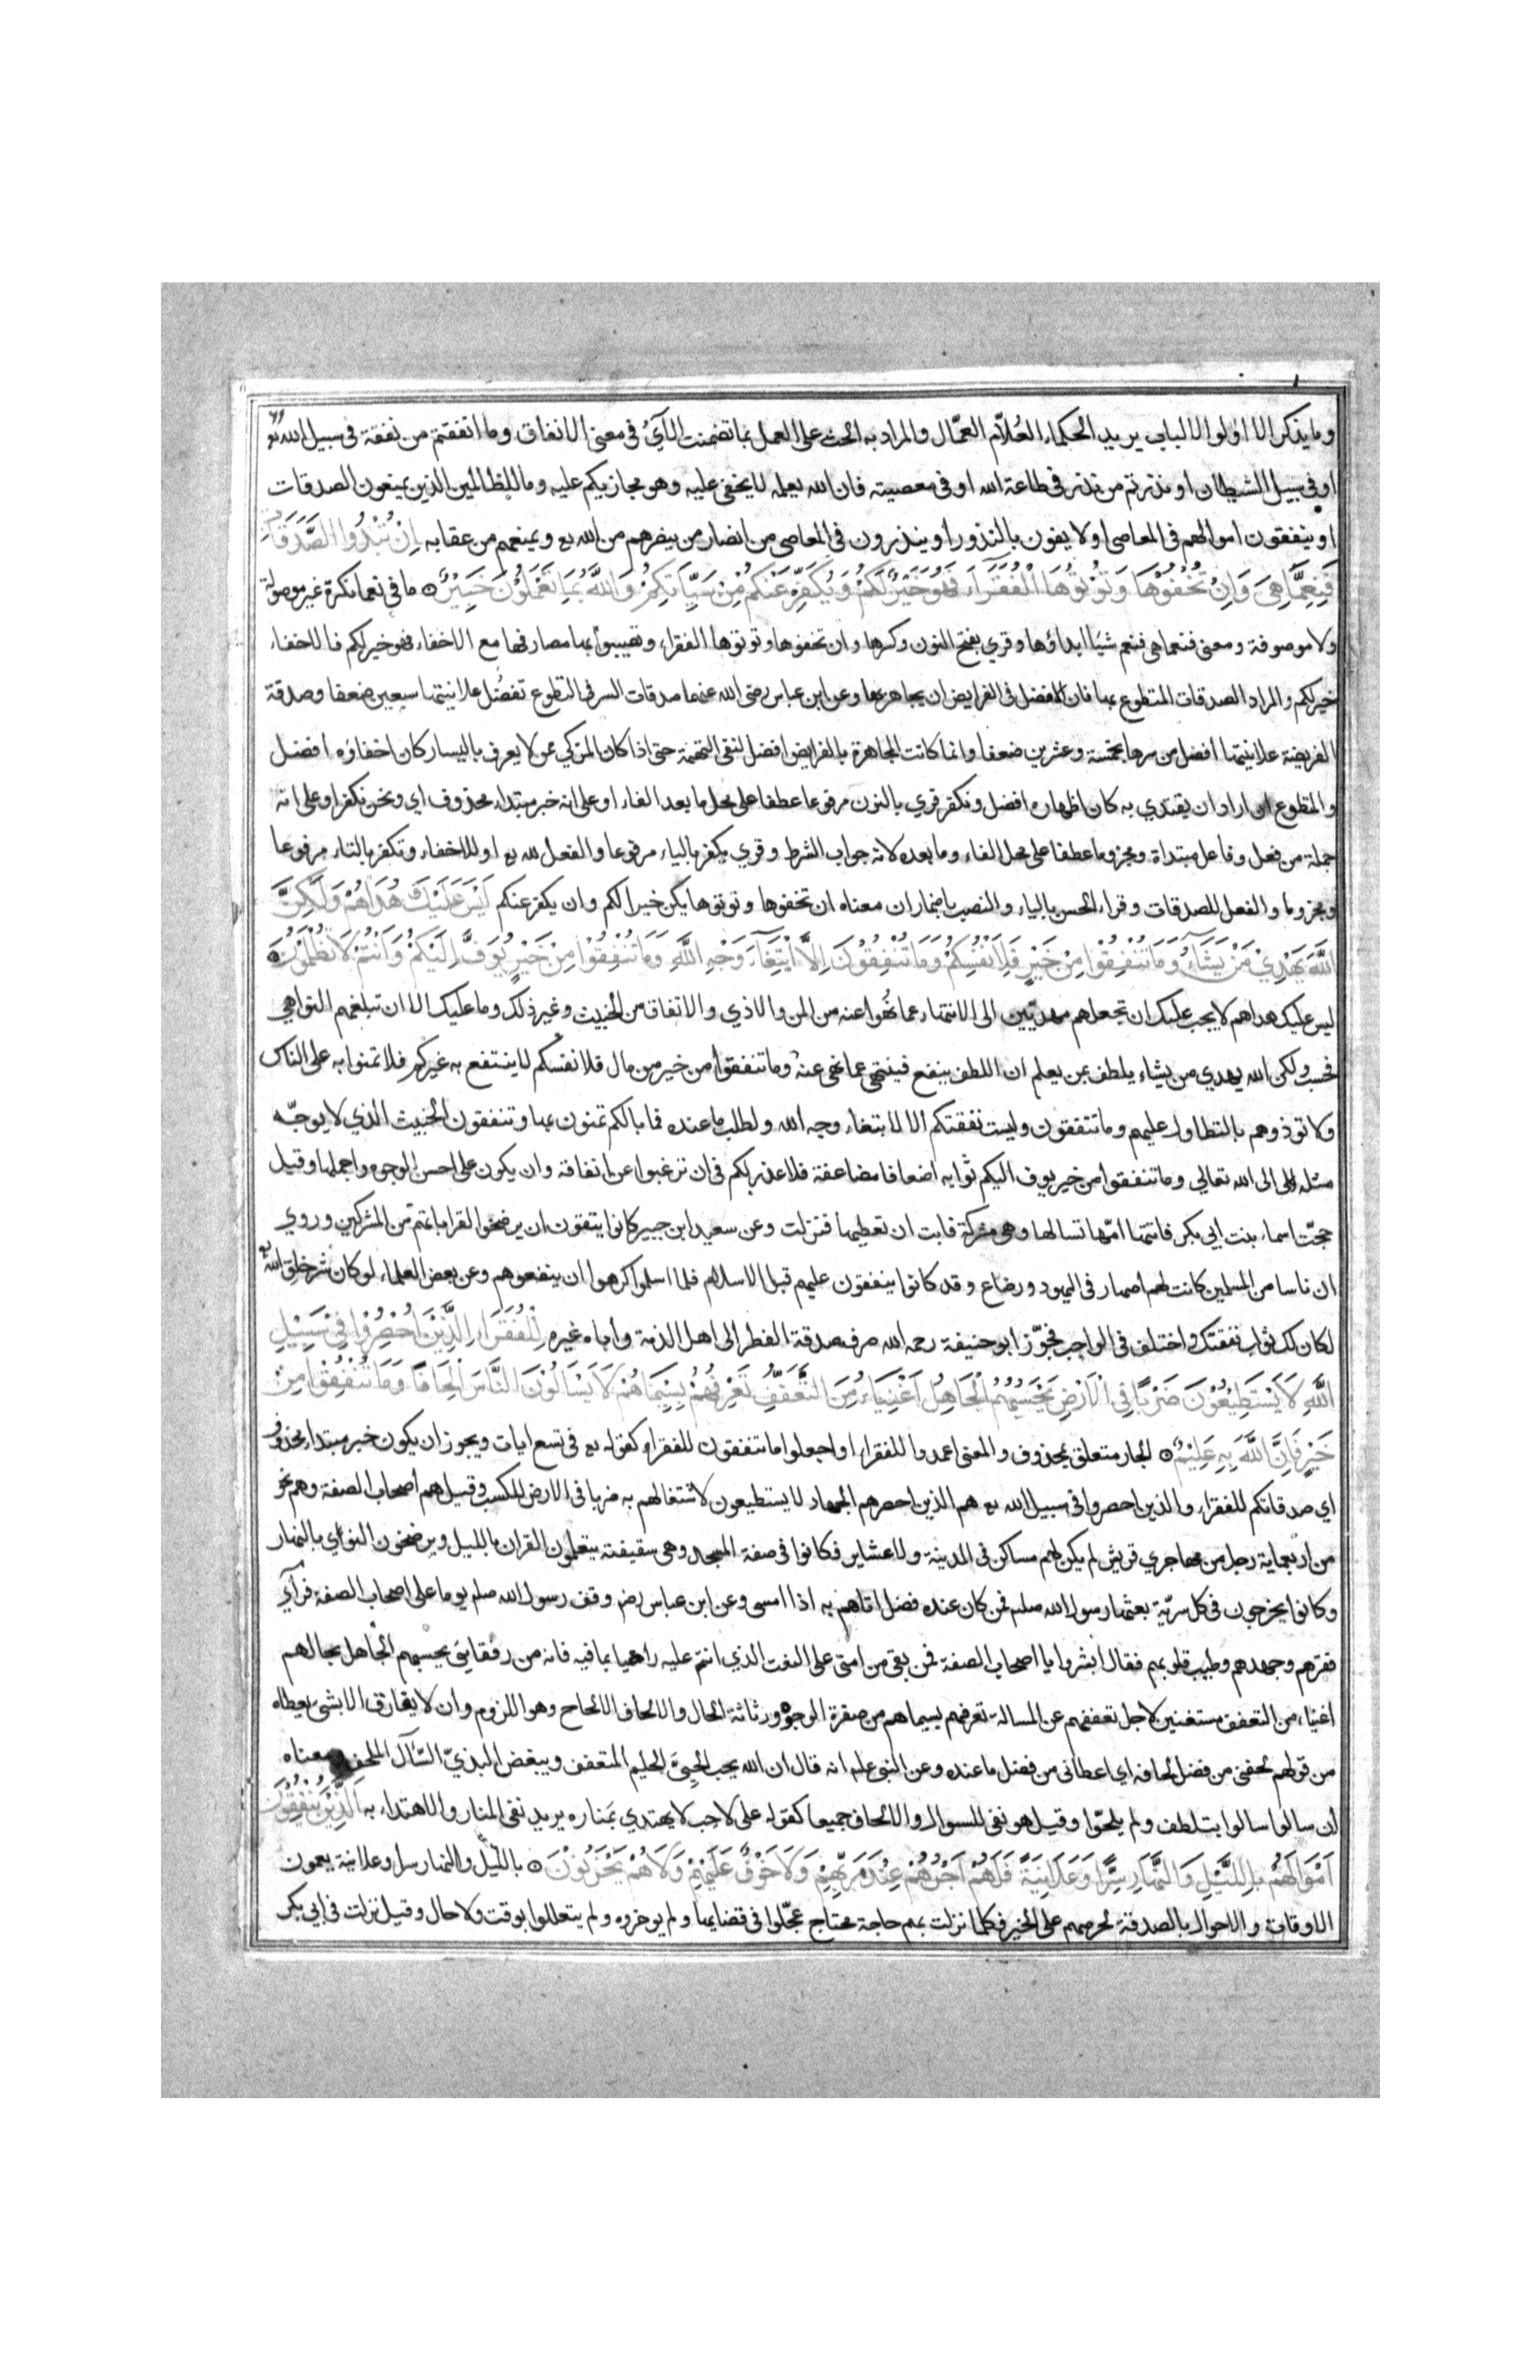 وما يذكر الا اولوا الالباب يريد الحكماء العُلاّم العمّال والمراد به الحث على العمل بما تضمنت الآيُ في معنى الانفاق وما انفقتم من نفقة في سبيل الله تع
او في سبيل الشيطان او نذرتم من نذر في طاعة الله او في معصيته فان الله يعلمه لا يخفى عليه وهو مجازيكم عليه وما للظالمين الذين يمنعون الصدقات
او ينفقون اموالهم في المعاصي او لا يفون بالنذور او ينذرون في المعاصي من انصار من ينصرهم من الله تع ويمنعهم من عقابه اِنْ تُبْدُوا الصَّدَقَاتِ
فَنِعِمَّا هِيَ وَاِنْ تُخْفُوْهَا وَتُؤْتُوْهَا الْفُقَرَآءَ فَهُوَ خَيْرٌ لَكُمْ وَيُكَفِّرُ عَنْكُمْ مِنْ سَيِّاٰتِكُمْ وَاللّٰهُ بِمَا تَعْمَلُوْنَ خَبِيْرٌ ما في نعما نكرة غير موصولة
ولا موصوفة ومعنى فنعما هي فنعم شيئا ابداؤها وقري بفتح النون وكسرها وان تخفوها وتوتوها الفقراء وتصيبوا بها مصارفها مع الاخفاء فهو خير لكم فالاخفاء
خير لكم والمراد الصدقات المتطوع بها فان الافضل في الفرايض ان يجاهر بها وعن ابن عباس رضي الله عنهما صدقات السر في التطوع تفضُل علانيتها سبعين ضعفا وصدقة
الفريضة علانيتها افضل من سرها بخمسة وعشرين ضعفا وانما كانت المجاهرة بالفرايض افضل لنفي التهمة حتى اذا كان المزكي ممن لا يعرف باليسار كان اخفاؤه افضل
والمتطوع ان اراد ان يقتدي به كان اظهاره افضل ونكفر قري بالنون مرفوعا عطفا على محل ما بعد الفاء او على انه خبر مبتداء محذوف اي ونحن نكفر او على انه
جملة من فعل وفاعل مبتداة ومجزوما عطفا على محل الفاء وما بعده لانه جواب الشرط وقري يكفر بالياء مرفوعا والفعل لله تع او للاخفاء وتكفر بالتاء مرفوعا
ومجزوما والفعل للصدقات وقراء الحسن بالياء والنصب باضمار ان معناه ان تخفوها وتوتوها يكن خيرا لكم وان يكفر عنكم لَيْسَ عَلَيْكَ هُدَاهُمْ وَلٰكِنَّ
اللّٰهَ يَهْدِيْ مَنْ يَشَآءُ وَمَا تُنْفِقُوْا مِنْ خَيْرٍ فَلِاَنْفُسِكُمْ وَمَا تُنْفِقُوْنَ اِلَّا ابْتِغَآءَ وَجْهِ اللّٰهِ وَمَا تُنْفِقُوْا مِنْ خَيْرٍ يُوَفَّ اِلَيْكُمْ وَاَنْتُمْ لَا تُظْلَمُوْنَ
ليس عليك هداهم لا يجب عليك ان تجعلهم مهديّين الى الانتهاء عما نُهوا عنه من المن والاذي والانفاق من الخبيث وغير ذلك وما عليك الا ان تبلغهم النواهي
فحسب ولكن الله يهدي من يشاء يلطف بمن يعلم ان اللطف ينفع فينتهي عما نهي عنه وما تنفقوا من خير من مال فلانفسكم لا ينتفع به غيركم فلا تمنوا به على الناس
ولا توذوهم بالتطاول عليهم وما تنفقون وليست نفقتكم الا لابتغاء وجه الله ولطلب ما عنده فما بالكم تمنون بها وتنفقون الخبيث الذي لا يوجّه
مثله الى الله تعالي وما تنفقوا من خير يوف اليكم ثوابه اضعافا مضاعفة فلا عذر لكم في ان ترغبوا عن انفاقه وان يكون على احسن الوجوه واجملها وقيل
حجت اسماء بنت ابي بكر فاتتها امّها تسالها وهي مشركة فابت ان تعطيها فنزلت وعن سعيد ابن جبير كانوا يتقون ان يرضخوا لقراباتهم من المشركين وروي
ان ناسا من المسلمين كانت لهم اصهار في اليهود ورضاع وقد كانوا ينفقون عليهم قبل الاسلام فلما اسلموا كرهوا ان ينفعوهم وعن بعض العلماء لو كان شر خلق الله
لكان لك ثواب نفقتك واختلف في الواجب فجوّز ابو حنيفة رحمه الله صرف صدقة الفطر الى اهل الذمة واباه غيره لِلْفُقَرَاءِ الَّذِيْنَ اُحْصِرُوْا فِيْ سَبِيْلِ
اللّٰهِ لَا يَسْتَطِيْعُوْنَ ضَرْبًا فِي الْاَرْضِ يَحْسَبُهُمُ الْجَاهِلُ اَغْنِيَاءَ مِنَ التَّعَفُّفِ تَعْرِفُهُمْ بِسِيْمَاهُمْ لَا يَسْاَلُوْنَ النَّاسَ اِلْحَافًا وَمَا تُنْفِقُوْا مِنْ
خَيْرٍ فَاِنَّ اللّٰهَ بِهٖ عَلِيْمٌ الجار متعلق بمحذوف والمعنى اعمدوا للفقراء او اجعلوا ما تنفقون للفقراء كقوله تع في تسع ايات ويجوز ان يكون خبر مبتداء محذوف
اي صدقاتكم للفقراء والذين احصروا في سبيل الله تع هم الذين احصرهم الجهاد لا يستطيعون لاشتغالهم به ضربا في الارض للكسب وقيل هم اصحاب الصفة وهم نحو
من اربعماية رجل من مهاجري قريش لم يكن لهم مساكن في المدينة ولا عشاير فكانوا في صفة المسجد وهي سقيفته يتعلمون القران بالليل ويرضخون النواي بالنهار
وكانوا يخرجون في كل سريّة بعثها رسول الله صلم فمن كان عنده فضل اتاهم به اذا امسى وعن ابن عباس رضم وقف رسول الله صلم يوما على اصحاب الصفة فرآي
فقرهم وجهدهم وطيب قلوبهم فقال ابشروا يا اصحاب الصفة فمن بقي من امتي على النعت الذي انتم عليه راضيا بما فيه فانه من رفقايئ يحسبهم الجاهل بحالهم
اغنياء من التعفف مستغنين لاجل تعففهم عن المسالة تعرفهم بسيماهم من صفرة الوجوه ورثاثة الحال والالحاف الالحاح وهو اللزوم وان لا يفارق الا بشئ يعطاه
من قولهم لحفني من فضل لحافه اي اعطاني من فضل ما عنده وعن النبي علم انه قال ان الله يحب الحييَّ الحليم المتعفف ويبغض البذيّ السّاٰل الملحف ومعناه
ان سالوا سالوا بتلطف ولم يلحّوا وقيل هو نفي للسوال والالحاف جميعا كقوله على لاحب لا يهتدي بمَناره يريد نفي المنار والاهتداء به اَلَّذِيْنَ يُنْفِقُوْنَ
اَمْوَالَهُمْ بِاللَّيْلِ وَالنَّهَارِ سِرًّا وَعَلَانِيَةً فَلَهُمْ اَجْرُهُمْ عِنْدَ رَبِّهِمْ وَلَا خَوْفٌ عَلَيْهِمْ وَلَا هُمْ يَحْزَنُوْنَ بالليل والنهار سرا وعلانية يعمون
الاوقات والاحوال بالصدقة لحرصهم على الخير فكلما نزلت بهم حاجة محتاج عجّلوا في قضايها ولم يوخروه ولم يتعللوا بوقت ولا حال وقيل نزلت في ابي بكر